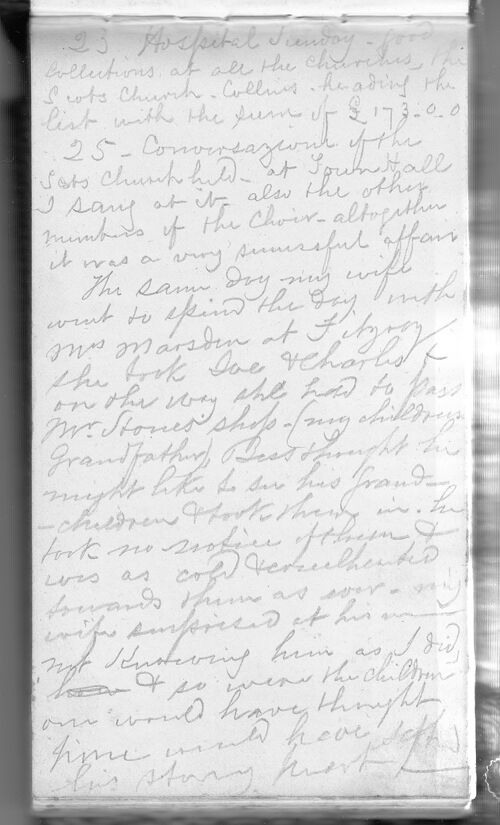 23 Hospital Sunday - good
collections at all the churches, the
Scots Church - Collins - heading the
list with the sum of £173.0.0
25 - Conversazione of the
Scots Church held - at Town Hall
I sang at it - also the other
members of the Choir - altogether
it was a very successful affair
The same day my wife
went to spend the day with
Mrs Marsden at Fitzroy
she took Joe & Charles &
on the way she had to pass
Mr. Stones shop - (my childrens
Grandfather) Bess thought he
might like to see his Grand-
-children & took them in - he
took no notice of them &
was as cold & cruelhearted
towards them as ever - my
wife surprised at his
not Knowing him as I did
& so were the children
one would have thought
time would have
his stony heart